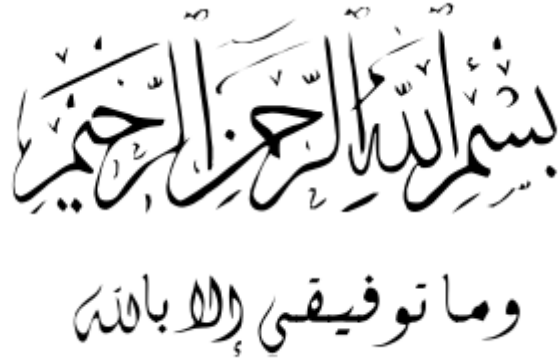 بسم الله الرحمن الرحيم
وما توفيقي إلا بالله